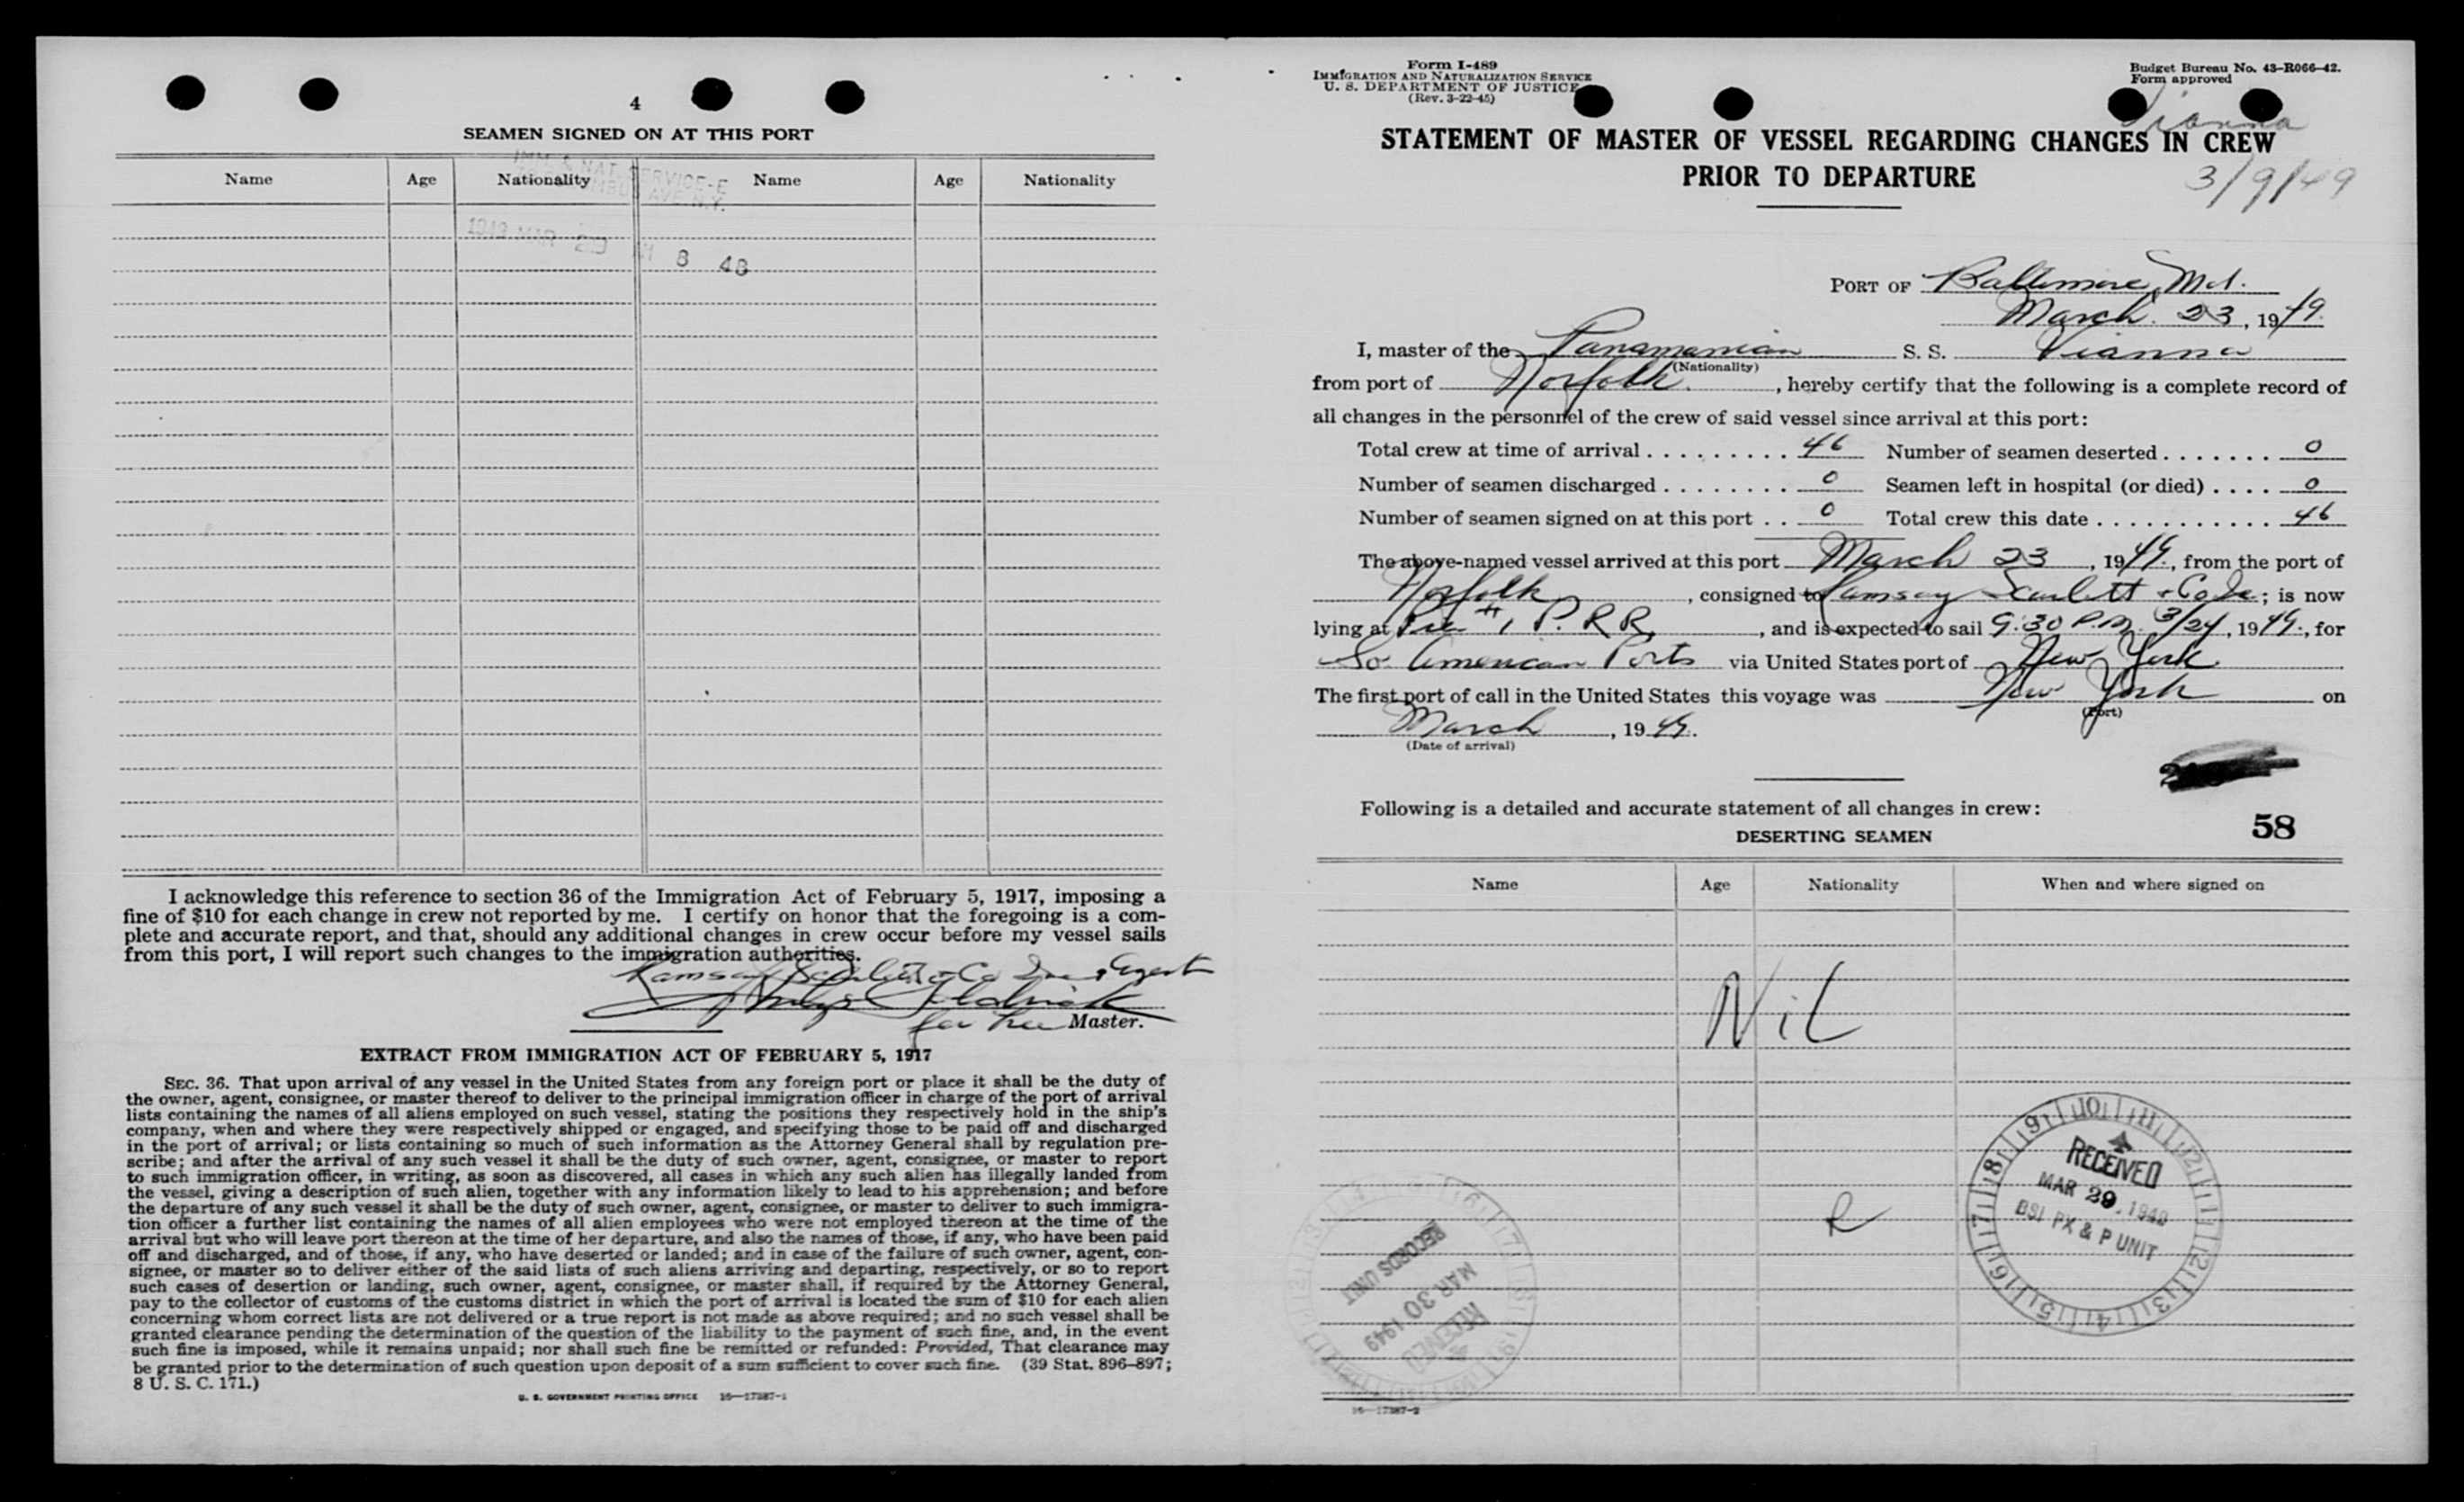 4
SEAMEN SIGNED ON AT THIS PORT
IMM. & NAT. SERVICE-E
AVE. N.Y.
Name Age Nationality Name Age Nationality
1949 MAR 29 8 48
I acknowledge this reference to section 36 of the Immigration Act of February 5, 1917, imposing a
fine of $10 for each change in crew not reported by me. I certify on honor that the foregoing is a com-
plete and accurate report, and that, should any additional changes in crew occur before my vessel sails
from this port, I will report such changes to the immigration authorities.
Ramsay Scarlett & Co Inc Agent
for the Master.
EXTRACT FROM IMMIGRATION ACT OF FEBRUARY 5, 1917
SEC. 36. That upon arrival of any vessel in the United States from any foreign port or place it shall be the duty of
the owner, agent, consignee, or master thereof to deliver to the principal immigration officer in charge of the port of arrival
lists containing the names of all aliens employed on such vessel, stating the positions they respectively hold in the ship's
company, when and where they were respectively shipped or engaged, and specifying those to be paid off and discharged
in the port of arrival; or lists containing so much of such information as the Attorney General shall by regulation pre-
scribe; and after the arrival of any such vessel it shall be the duty of such owner, agent, consignee, or master to report
to such immigration officer, in writing, as soon as discovered, all cases in which any such alien has illegally landed from
the vessel, giving a description of such alien, together with any information likely to lead to his apprehension; and before
the departure of any such vessel it shall be the duty of such owner, agent, consignee, or master to deliver to such immigra-
tion officer a further list containing the names of all alien employees who were not employed thereon at the time of the
arrival but who will leave port thereon at the time of her departure, and also the names of those, if any, who have been paid
off and discharged, and of those, if any, who have deserted or landed; and in case of the failure of such owner, agent, con-
signee, or master so to deliver either of the said lists of such aliens arriving and departing, respectively, or so to report
such cases of desertion or landing, such owner, agent, consignee, or master shall, if required by the Attorney General,
pay to the collector of customs of the customs district in which the port of arrival is located the sum of $10 for each alien
concerning whom correct lists are not delivered or a true report is not made as above required; and no such vessel shall be
granted clearance pending the determination of the question of the liability to the payment of such fine, and, in the event
such fine is imposed, while it remains unpaid; nor shall such fine be remitted or refunded: Provided, That clearance may
be granted prior to the determination of such question upon deposit of a sum sufficient to cover such fine. (39 Stat. 896-897;
8 U. S. C. 171.)
U. S. GOVERNMENT PRINTING OFFICE 16—17387-1
Form I-489
IMMIGRATION AND NATURALIZATION SERVICE
U. S. DEPARTMENT OF JUSTICE
(Rev. 3-22-45)
Budget Bureau No. 43-R066-42.
Form approved
Vianna
STATEMENT OF MASTER OF VESSEL REGARDING CHANGES IN CREW
PRIOR TO DEPARTURE
3/9/49
PORT OF Baltimore, Md.
March 23, 1949
I, master of the Panamanian S. S. Vianna
(Nationality)
from port of Norfolk, hereby certify that the following is a complete record of
all changes in the personnel of the crew of said vessel since arrival at this port:
Total crew at time of arrival . . . . . . . . . 46 Number of seamen deserted . . . . . . . 0
Number of seamen discharged . . . . . . . . 0 Seamen left in hospital (or died) . . . . 0
Number of seamen signed on at this port . . 0 Total crew this date . . . . . . . . . . . . 46
The above-named vessel arrived at this port March 23, 1949, from the port of
Norfolk, consigned to Ramsay Scarlett & Co Inc; is now
lying at Pier #1 P.R.R., and is expected to sail 9:30 P.M. 3/24, 1949, for
So American Ports via United States port of New York
The first port of call in the United States this voyage was New York on
(Port)
March, 1949.
(Date of arrival)
Following is a detailed and accurate statement of all changes in crew:
58
DESERTING SEAMEN
Name Age Nationality When and where signed on
Nil
R
RECEIVED
MAR 29. 1949
BSI PX & P UNIT
RECORDS UNIT
MAR 30 1949
RECEIVED
16—17387-2